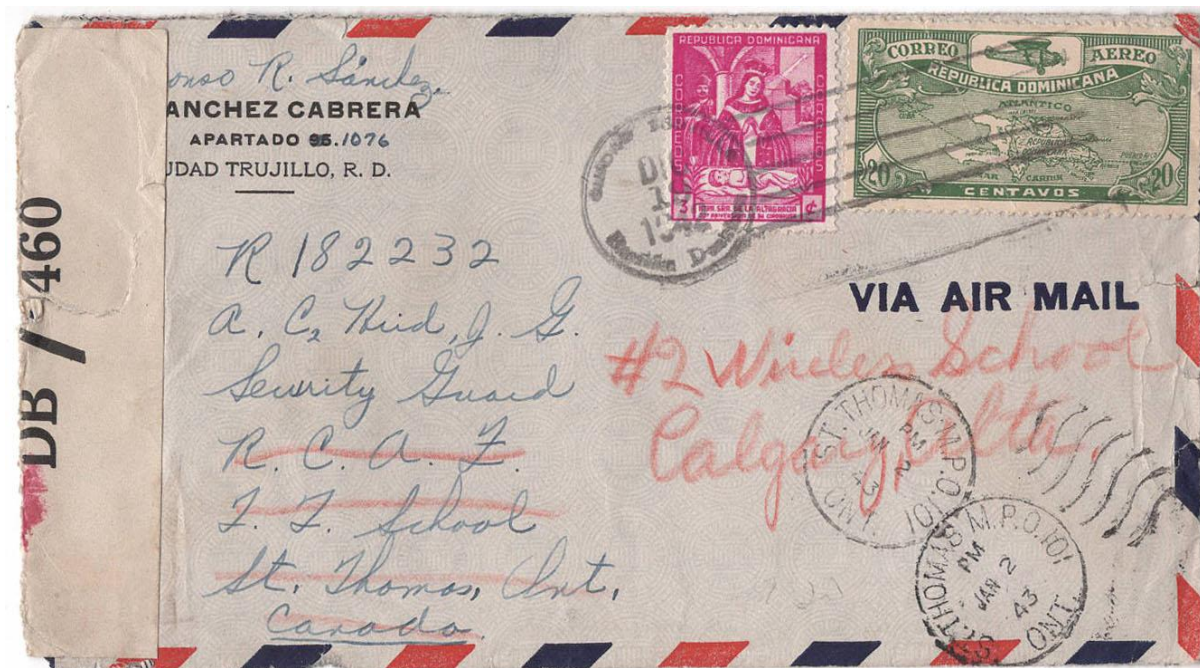 onso R. Sánchez
ANCHEZ CABRERA
APARTADO 95. 1076
UDAD TRUJILLO, R. D.
REPUBLICA DOMINICANA
CORREOS
CORREOS
3 ¢
CORREO AEREO
REPUBLICA DOMINICANA
ATLANTICO
MAR CARIBE
20 20
CENTAVOS
VIA AIR MAIL
DB / 460
R 182232
A. C2 Hird, J. G.
Security Guard
R. C. A. F.
T. T. School
St. Thomas, Ont.
Canada
#2 Wireless School
Calgary, Alta.
ST. THOMAS M.P.O. 101
PM
JAN 2
43
ONT.
ST. THOMAS M.P.O. 101
PM
JAN 2
43
ONT.